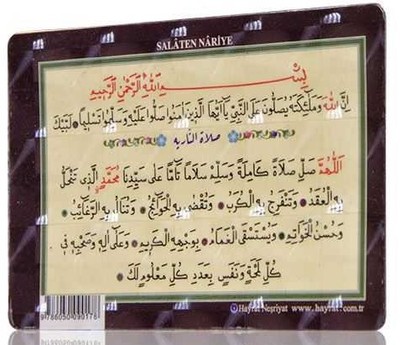 SALÂTEN NÂRİYE
بِسْمِ اللّٰهِ الرَّحْمٰنِ الرَّحِيمِ
اِنَّ اللّٰهَ وَمَلٰٓئِكَتَهُ يُصَلُّونَ عَلَى النَّبِيِّ يَٓا اَيُّهَا الَّذِينَ اٰمَنُوا صَلُّوا عَلَيْهِ وَسَلِّمُوا تَسْلِيمًا ۞ لَبَّيْكَ
صلاة النارية
اَللّٰهُمَّ صَلِّ صَلَاةً كَامِلَةً وَسَلِّمْ سَلَامًا تَامًّا عَلٰى سَيِّدِنَا مُحَمَّدٍ الَّذِى تَنْحَلُّ
بِهِ الْعُقَدُ ۞ وَتَنْفَرِجُ بِهِ الْكُرَبُ ۞ وَتُقْضٰى بِهِ الْحَوَائِجُ ۞ وَتُنَالُ بِهِ الرَّغَائِبُ ۞
وَحُسْنُ الْخَوَاتِمِ ۞ وَيُسْتَسْقَى الْغَمَامُ ۞ بِوَجْهِهِ الْكَرِيمِ ۞ وَعَلٰى اٰلِهِ وَصَحْبِهِ فِى
كُلِّ لَمْحَةٍ وَنَفَسٍ بِعَدَدِ كُلِّ مَعْلُومٍ لَكَ ۞
9786050090178
Hayrat Neşriyat www.hayrat.com.tr